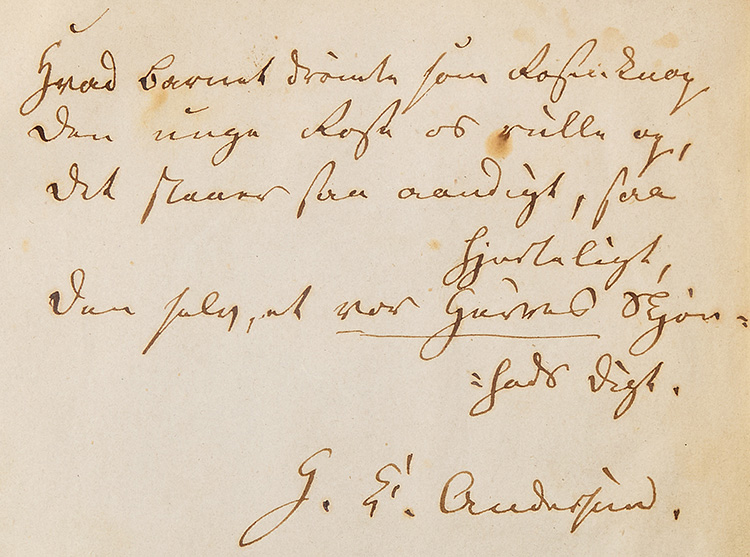 Hvad Barnet drømte som Rosenknop
Den unge Rose os rulle op,
Det staaer saa aandigt, saa
hjerteligt,
Den selv, et vor Herres Skjøn=
=heds Digt.
H. C. Andersen.